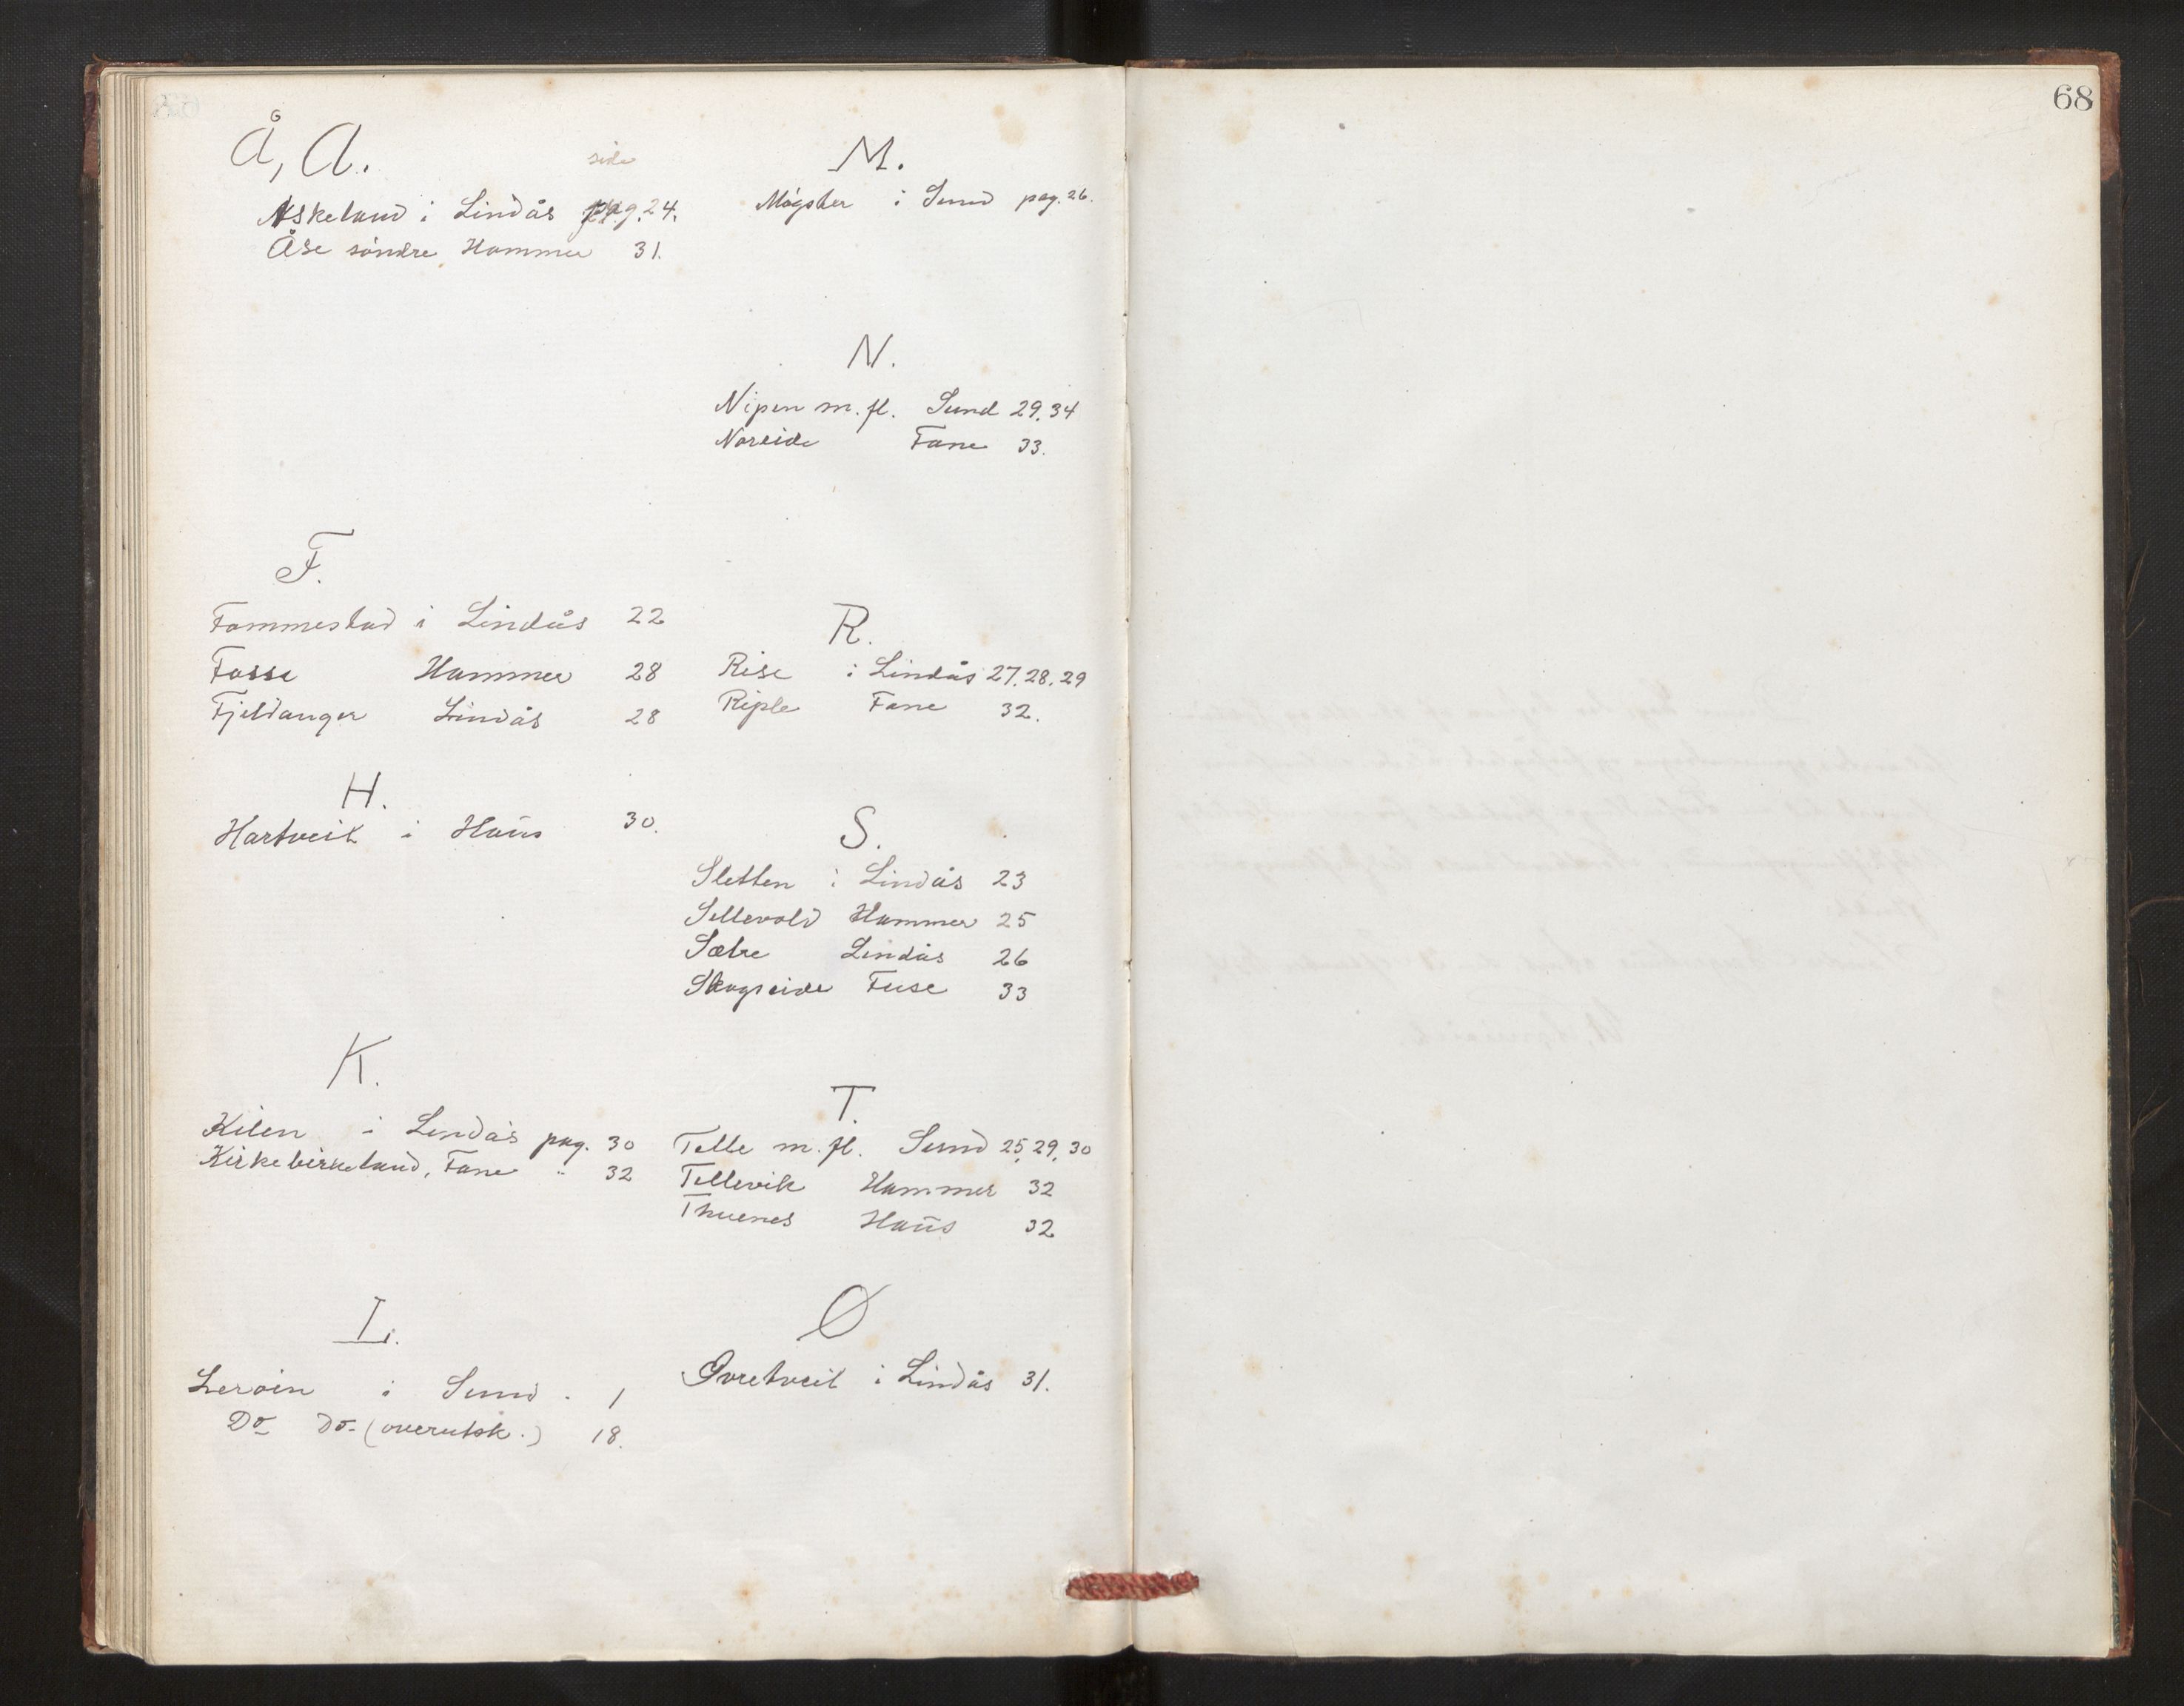 68
Å, A.
side
Askeland i Lindås pag. 24.
Åse søndre Hammer 31.
F.
Fammestad i Lindås 22
Fosse Hammer 28
Fjeldanger Lindås 28
H.
Hartveit i Haus 30.
K.
Kilen i Lindås pag. 30
Kirkebirkeland, Fane " 32
L.
Lerøen i Sund . 1
Do Do (overutsk.) 18.
M.
Møgster i Sund pag. 26.
N.
Nipen m. fl. Sund 29, 34
Noreide Fane 33.
R.
Rise i Lindås 27, 28, 29
Riple Fane 32.
S.
Sletten i Lindås 23
Sellevold Hammer 25
Sætre Lindås 26
Skogseide Fuse 33
T.
Telle m. fl. Sund 25, 29, 30
Tellevik Hammer 32
Thuenes Haus 32
Ø
Øvretveit i Lindås 31.